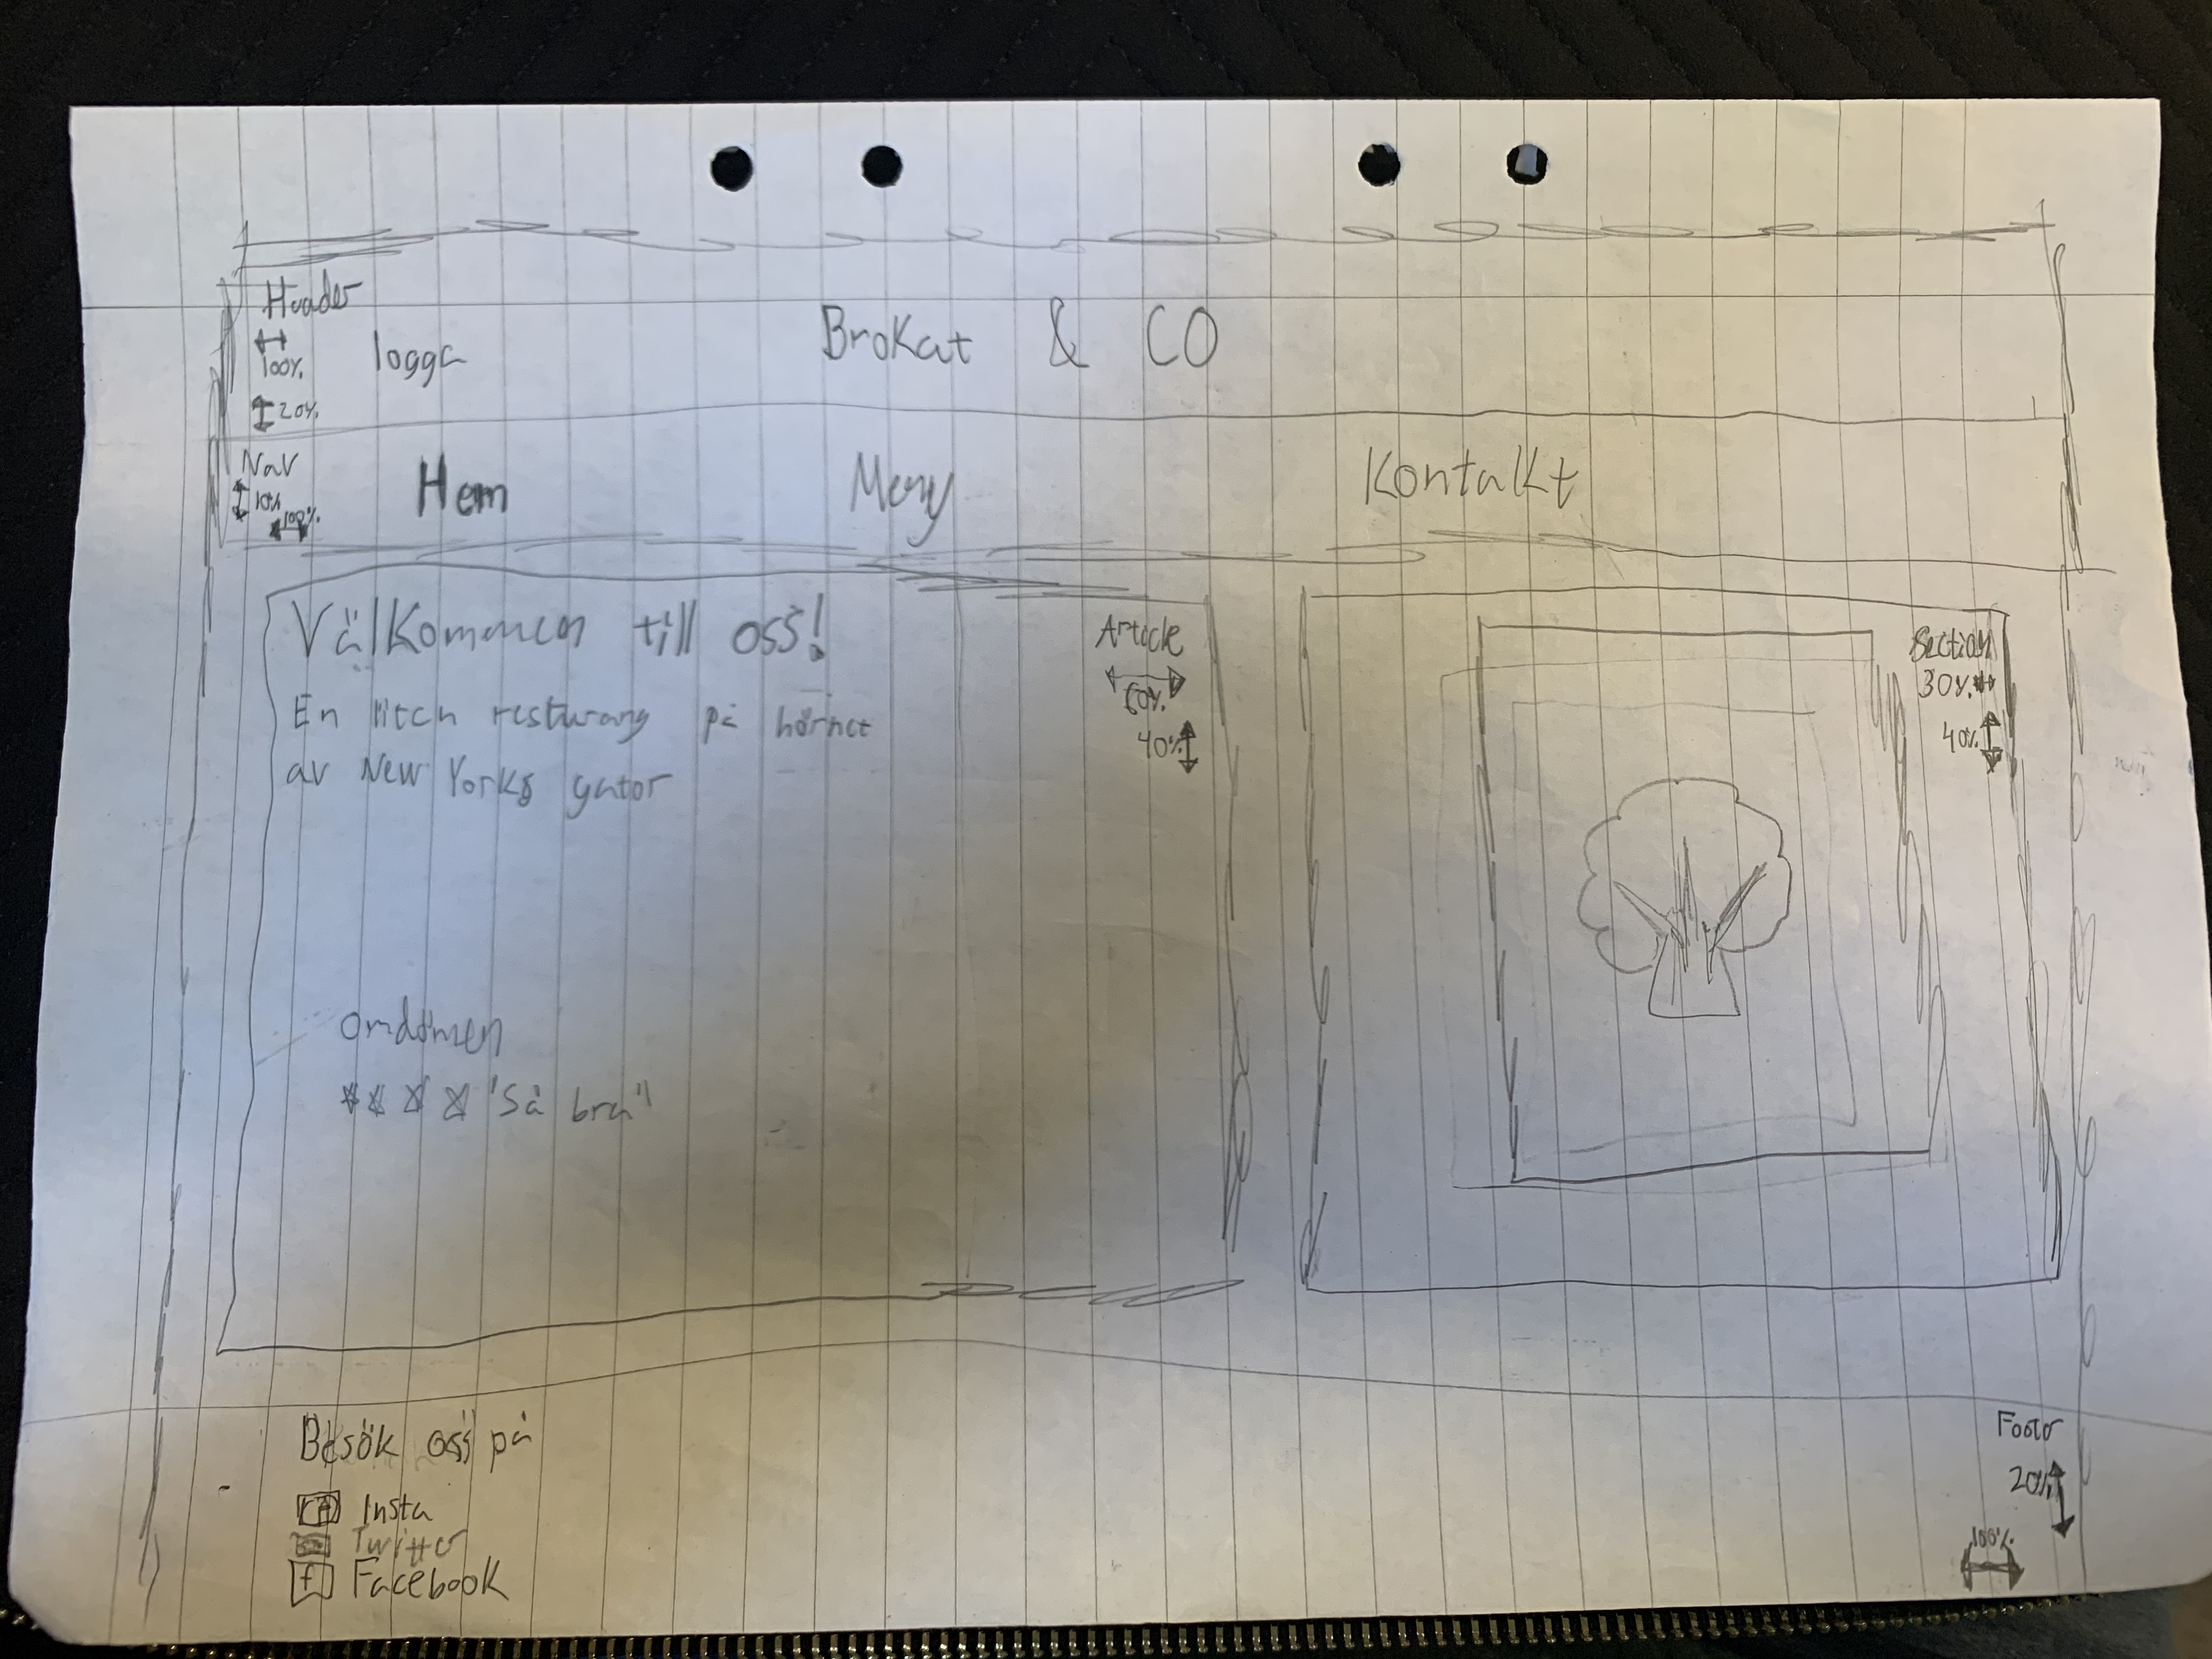 Header
100%
logga
BroKat & CO
20%
Nav
10%
100%
Hem
Meny
Kontakt
Välkommen till oss!
En liten resturang på hörnet
av New Yorks gator
Article
60%
40%
Section
30%
40%
omdömen
"Så bra"
Besök oss på
Insta
Twitter
f Facebook
Footer
20%
100%